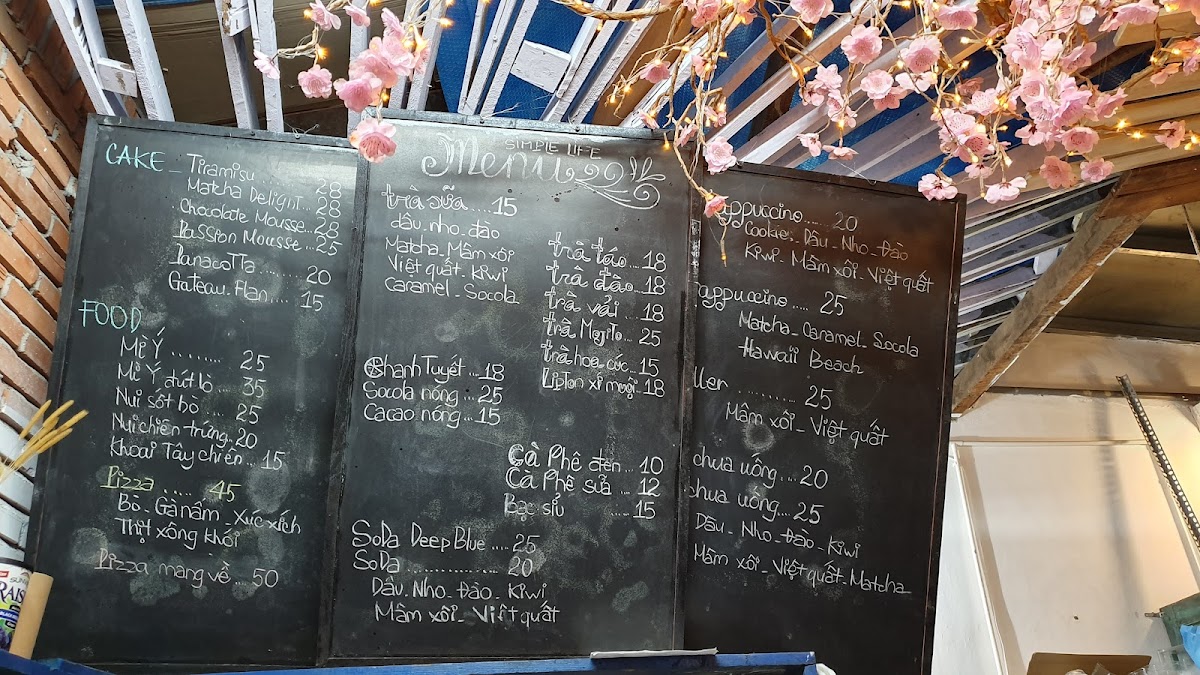 CAKE - Tiramisu 28
Matcha Delight 28
Chocolate Mousse... 28
Passion Mousse... 25
Panacotta ..... 20
Gateau.Flan .... 15
FOOD
Mì Ý ........ 25
Mì Ý đút lò ... 35
Nui sốt bò .... 25
Nui chiên trứng. 20
Khoai Tây chiên ... 15
Pizza ..... 45
Bò - Gà nấm - Xúc xích
Thịt xông khói
Pizza mang về ... 50
SIMPLE LIFE
Menu
trà sữa .....15
dâu.nho.đào
Matcha.Mâm xôi
Việt quất.Kiwi
caramel - Socola
trà táo ... 18
trà đào ... 18
trà vải ... 18
trà Mojito... 25
trà hoa cúc... 15
Lipton xí muội. 18
Chanh Tuyết... 18
Socola nóng ... 25
Cacao nóng ... 15
Cà Phê đen ... 10
Cà Phê sửa ... 12
Bạc sỉu ..... 15
SoDa Deep Blue ..... 25
SoDa ............... 20
Dâu. Nho. Đào - Kiwi
Mâm xôi - Việt quất
appuccino ..... 20
Cookie. Dâu - Nho - Đào
Kiwi. Mâm xôi. Việt quất
appuccino ..... 25
Matcha - Caramel - Socola
Hawaii Beach
.......... 25
Mâm xôi - Việt quất
chua uống .... 20
chua uống .... 25
Dâu - Nho - Đào - Kiwi
Mâm xôi - Việt quất - Matcha